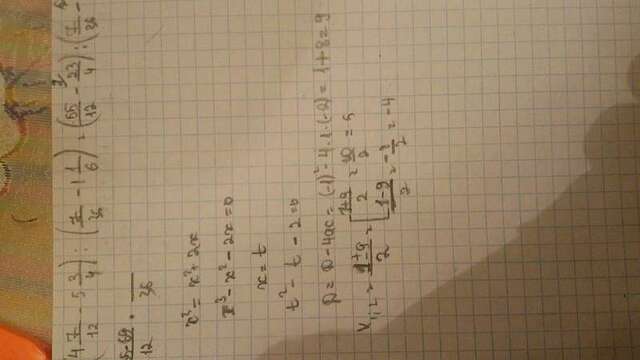 (4 7/12 - 5 3/4) : (7/36 - 1 1/6) = (55/12 - 23/4) : (7/36 -
5-69/12 · /36
x³ = x² + 2x
x³ - x² - 2x = 0
x = t
t² - t - 2 = 0
D = D - 4ac = (-1)² - 4·1·(-2) = 1 + 8 = 9
x1,2 = 1±9/2 = [ 1+9/2 = 10/2 = 5
1-9/2 = -8/2 = -4